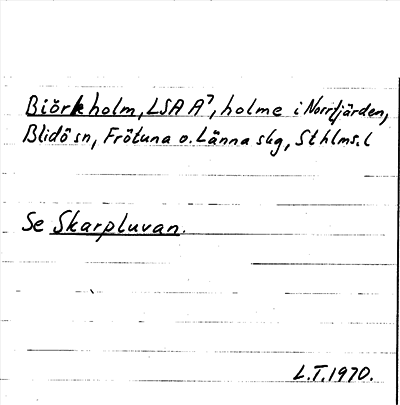 Biörkholm, LSA A7, holme i Norrfjärden,
Blidö sn, Frötuna o. Länna slg, Sthlms. l
Se Skarpluvan.
L.T. 1970.